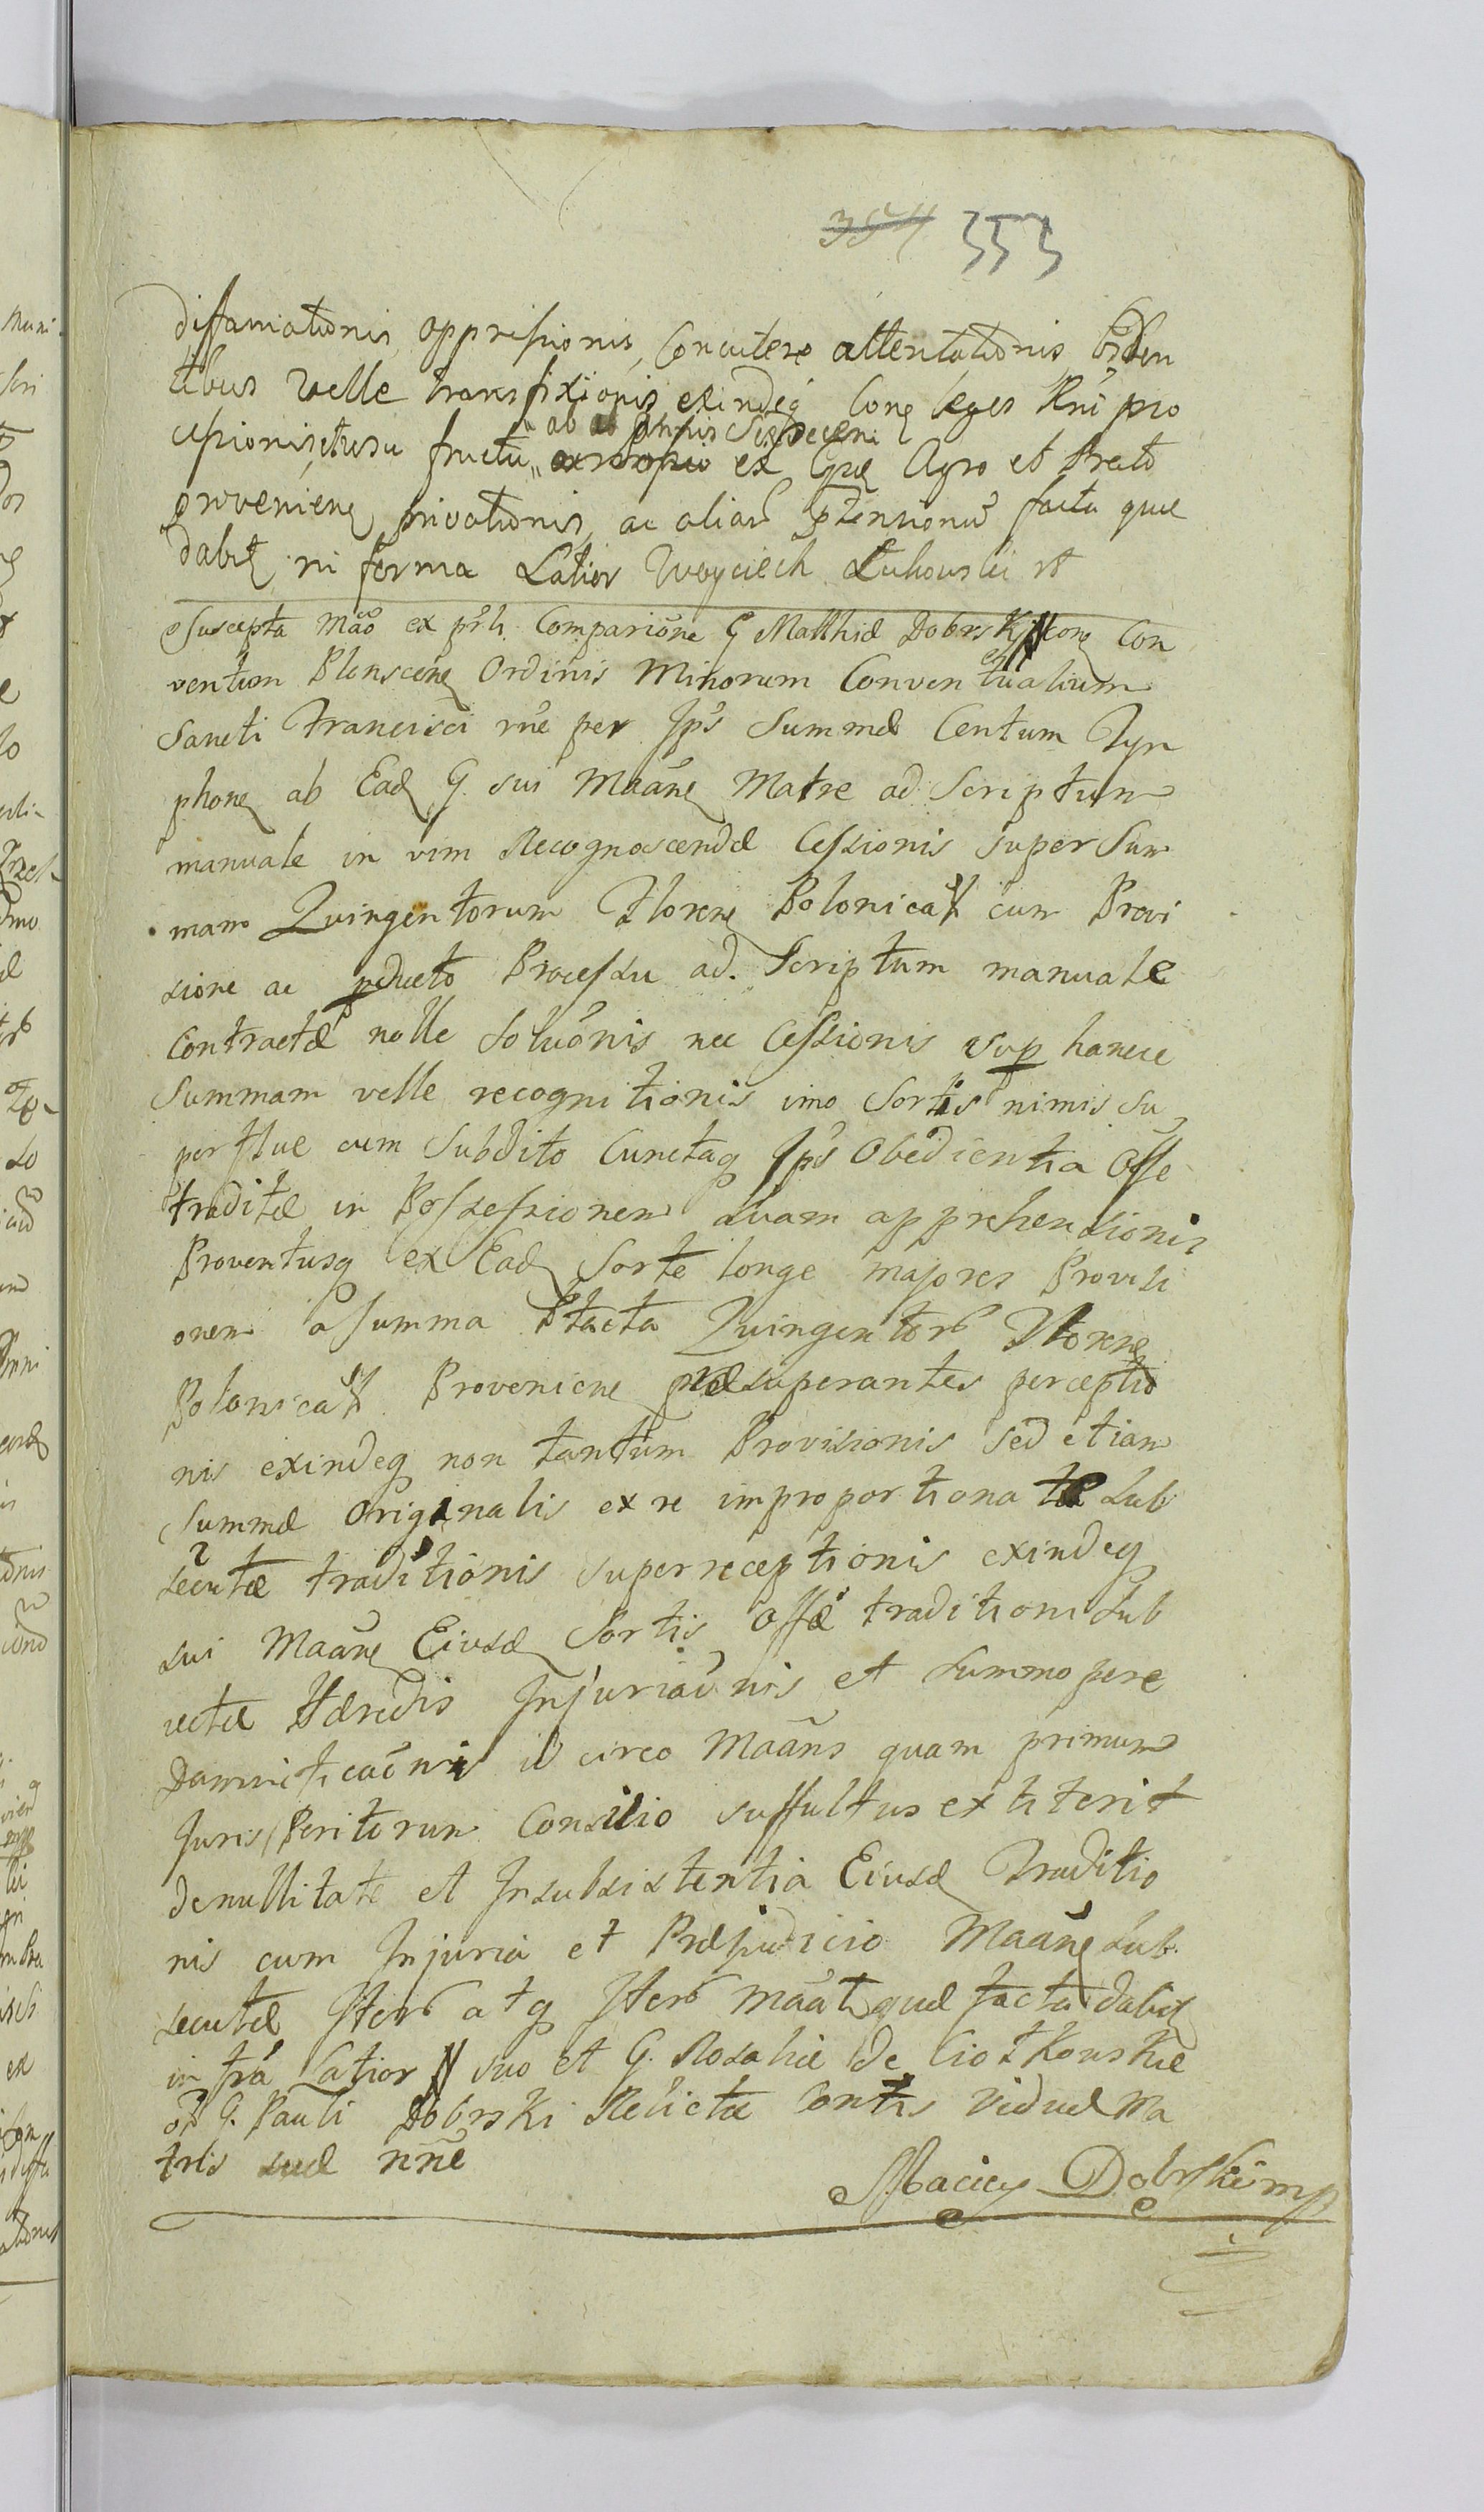 354 353
diffamationis oppressionis, Concutere attentationis,
tibus velle transfixionis exindeq Conq leges Rni pro
cessionis, et usu fructu
ab annis Sexdecem
ex Agro et Prato
provenienq privationis, ac aliarū ptensionū facta que
dabitq in forma Latior Woyciech Łukowski
Suscepta Mão ex prli Compariōne G Matthiæ Dobrski conq Con
ventum Plonscenq Ordinis Minorum Conventualium
Sancti Francisci rne per Ips Summæ Centum Tyn
phonq ab Eadq G. sui Maānq Matre ad Scriptum
manuale in vim Recognoscendæ Cessionis super Sum
mam Quingentorum Florenq Polonical cum Provi
sione ac pducto Processu ad. Scriptum manuale
Contractæ nolle Soluōnis nec Cessionis sup hancce
Summam velle recognitionis imo Sortis nimis su
perflue cum Subdito Cunctaq Ips Obedientia Offe
traditæ in Possessionem suam apprehensionis
Proventusq ex Eadq Sorte longe majores Provisi
onem a Summa Ptacta Quingentorū Florenq
Polonical Provenienq præsuperantes perceptio
nis exindeq non tantum Provisionis sed etiam
Summæ Originalis ex re improportionatæ Sub
secutæ traditionis superreceptionis exindeq
sui Maānq Eiusdq Sortis Offæ traditioni Sub
iectæ Hæredis Injuriaōnis et summopere
Damnificaōnis id circo Maāns quam primum
Juris Peritorum Consilio suffultus extiterit
de nullitate et Insubsistentia Eiusdq Traditio
nis cum Injuria et Præjudicio Maānq Sub
secutæ Iterū atq Iterū Maāt quæ facta dabitq
in frā Latior suo et G. Rosaliæ de Ciotkouskie
G. Pauli Dobrski Relictæ Contis Viduæ Ma
tris suæ nnē
Maciey Dobrski mp